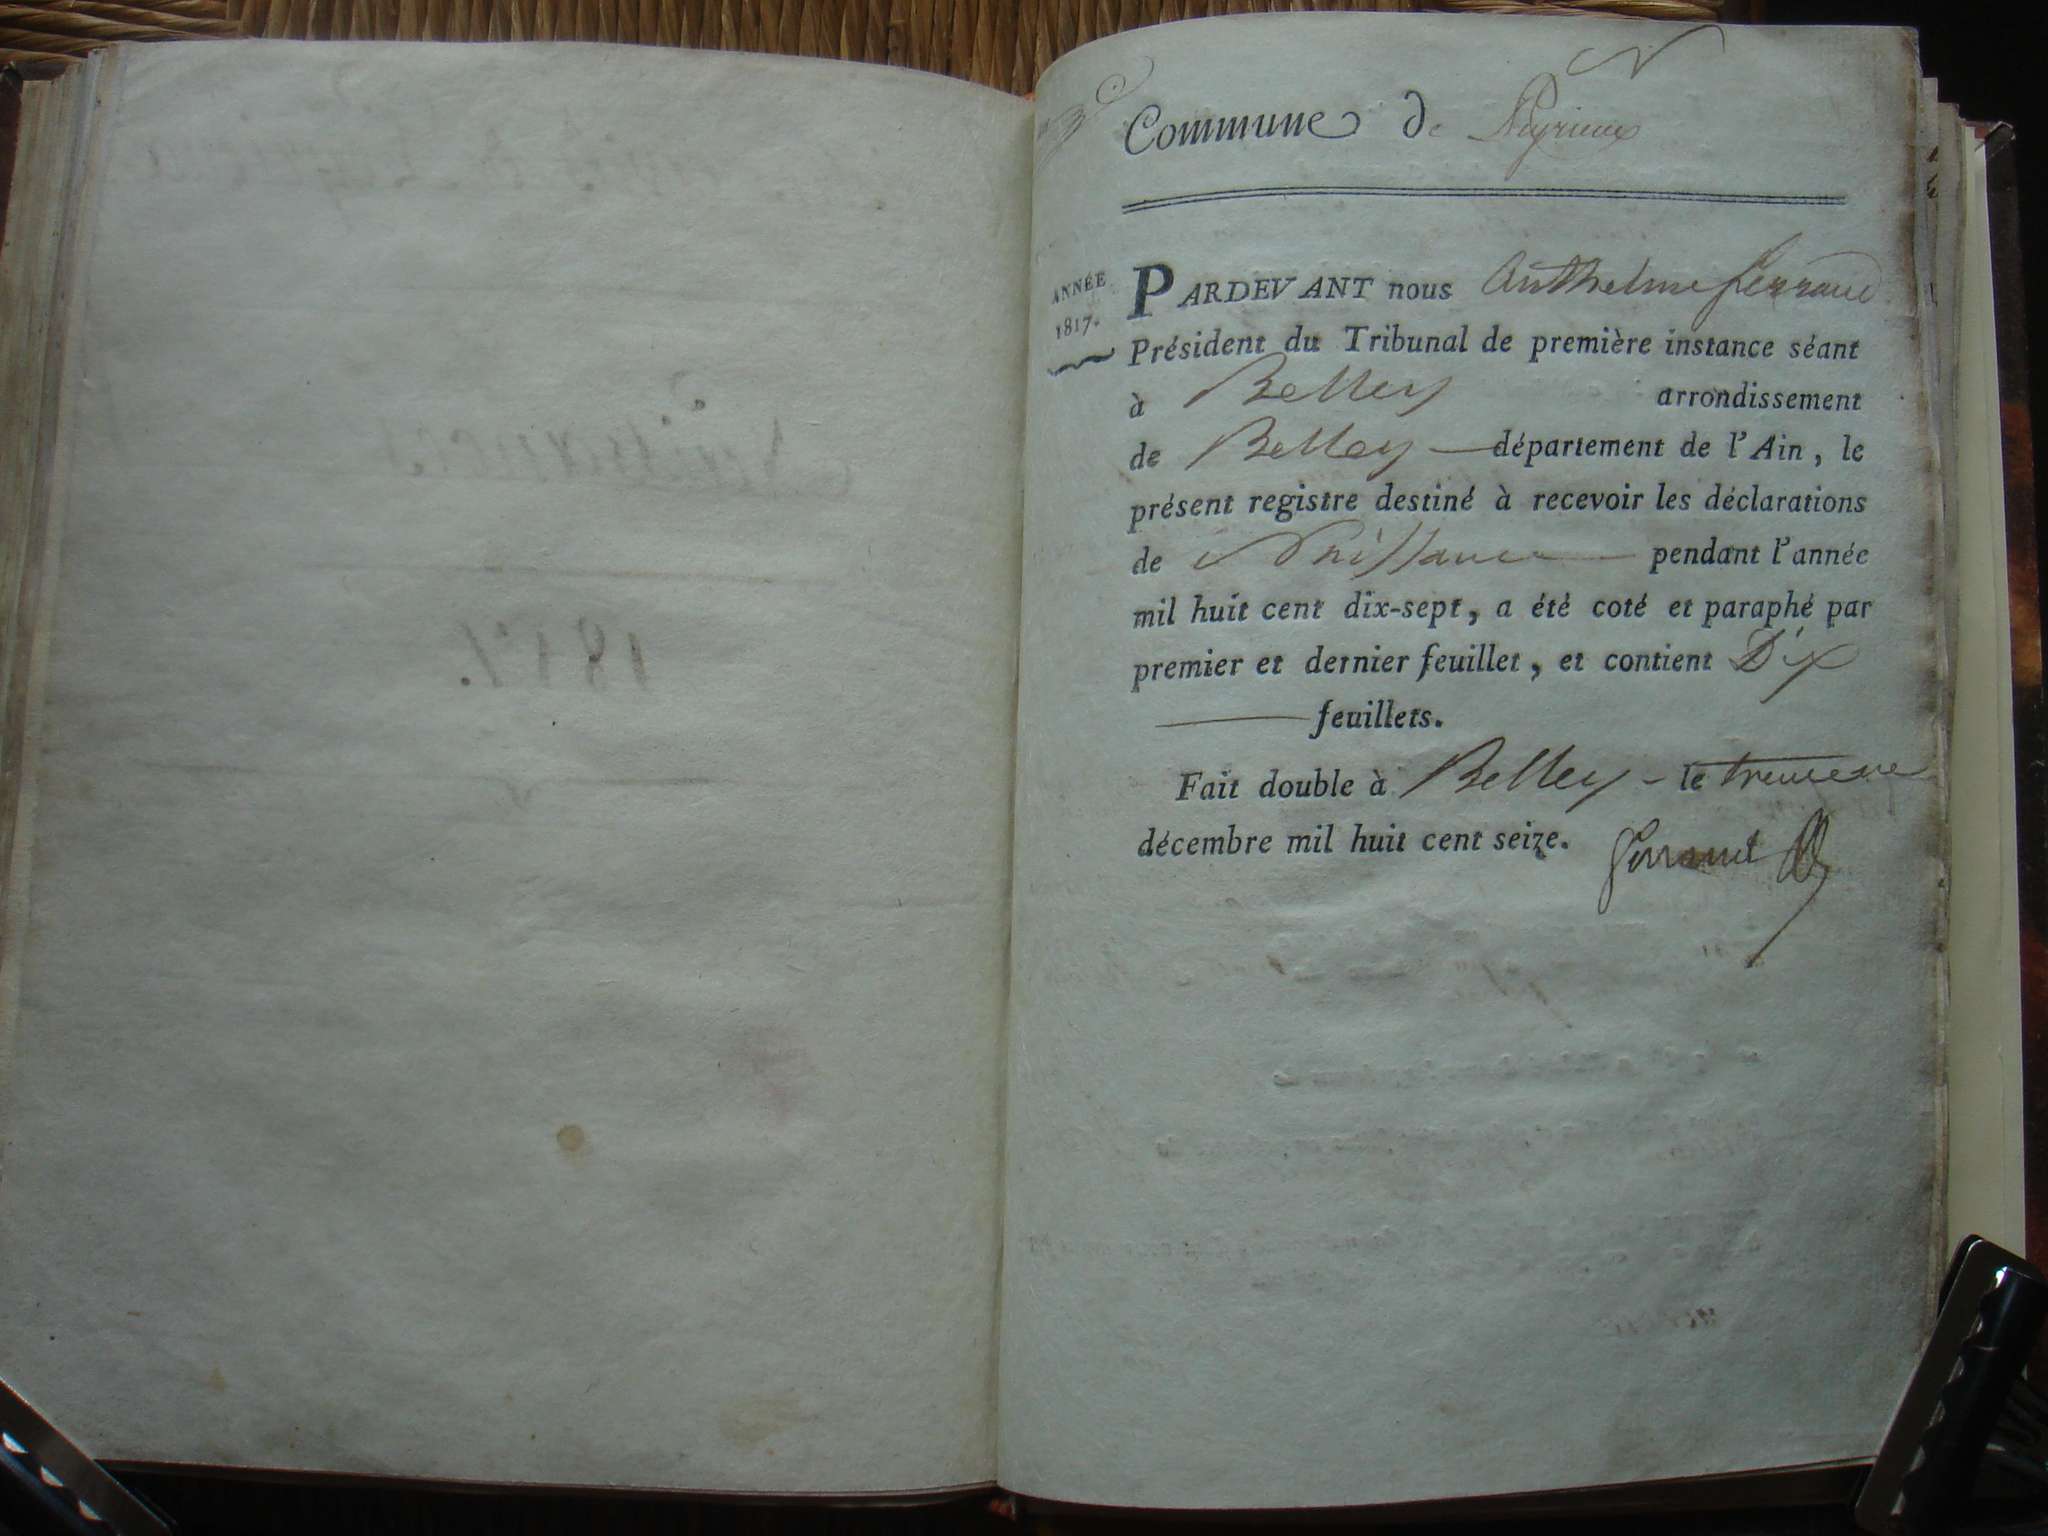 Commune de Peyrieux
ANNÉE
1817.
PARDEVANT nous Anthelme Ferrand
Président du Tribunal de première instance séant
à Belley arrondissement
de Belley département de l'Ain, le
présent registre destiné à recevoir les déclarations
de Naissance pendant l'année
mil huit cent dix-sept, a été coté et paraphé par
premier et dernier feuillet, et contient Dix
feuillets.
Fait double à Belley le
décembre mil huit cent seize.
Ferrand
Naissances
1817.